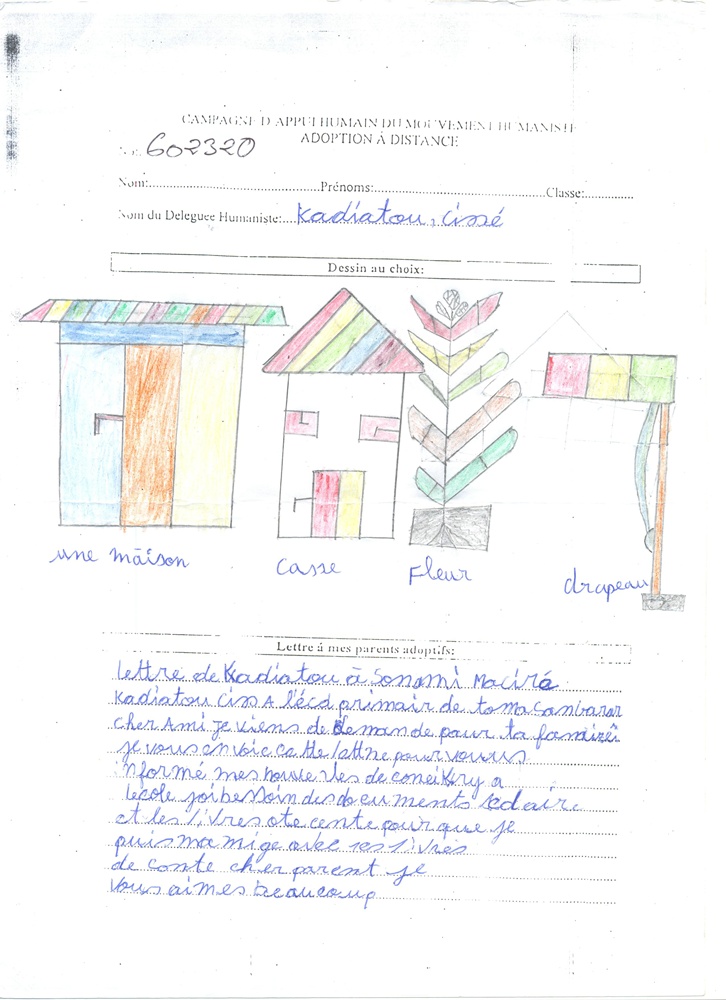 CAMPAGNE D'APPUI HUMAIN DU MOUVEMENT HUMANISTE
ADOPTION À DISTANCE
602320
Nom:.....Prénoms:.....Classe:.....
Nom du Deleguee Humaniste:....Kadiatou, Cissé
Dessin au choix:
une maison
Casse
Fleur
drapeau
Lettre à mes parents adoptifs:
lettre de Kadiatou à Sonomi Maciré
Kadiatou Ciss A l'écol primair de toma
cher Ami je viens de demande pour ta
je vous envoie cette lettre pour vouus
nformé mes de a
lecole joi besoin des documents sclaire
et les livres pour que je
puis livres
de conte cher parent je
vous aimes beaucoup